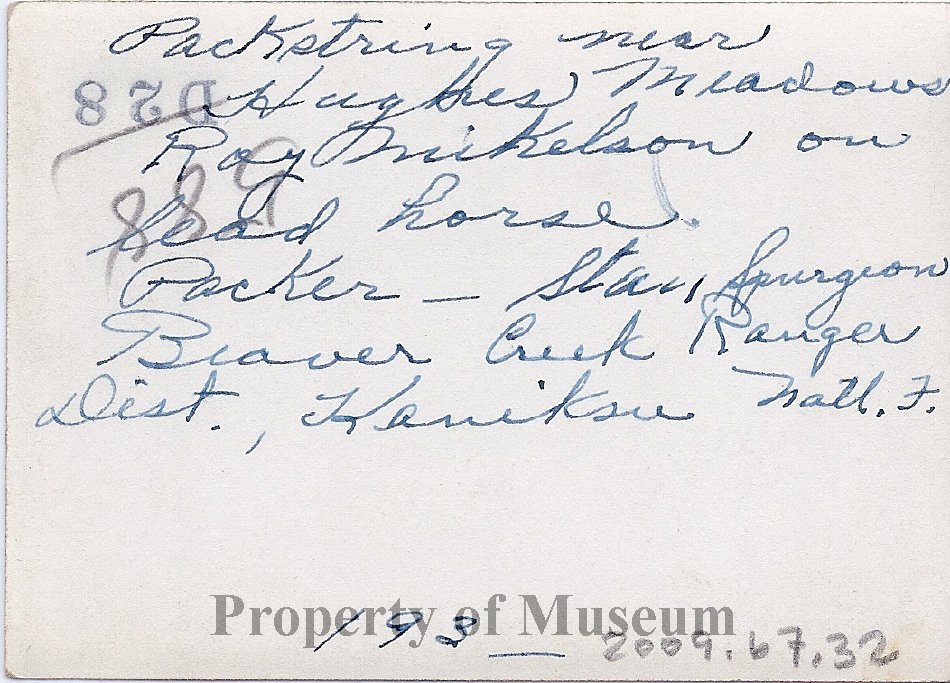 Packstring near
Hughes Meadows
D28
Ray Mikelson on
lead horse.
Packer - Stan Spurgeon
Beaver Creek Ranger
Dist., Kaniksu Natl. F.
193_
Property of Museum
2009.67.32